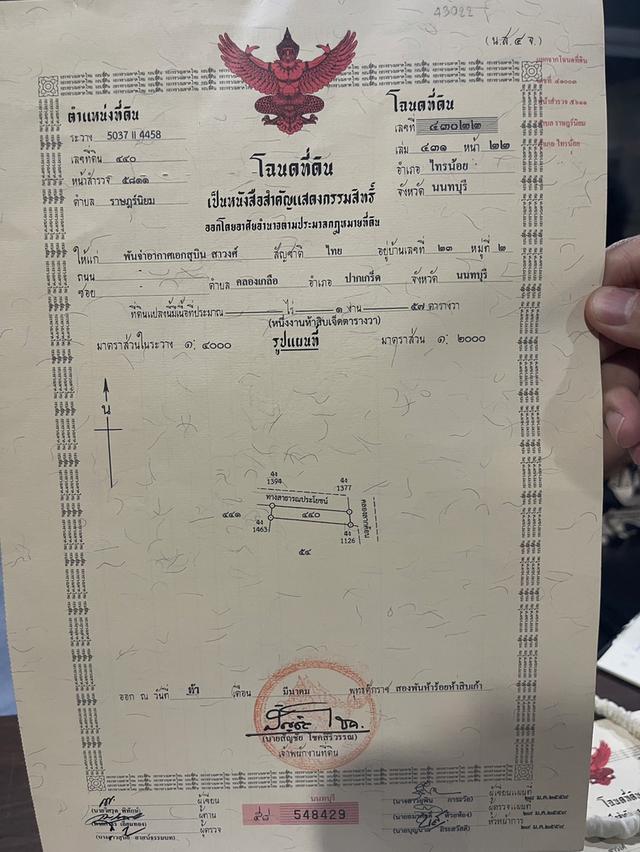 43022
(น.ส.๔ จ.)
ตำแหน่งที่ดิน
ระวาง 5037 II 4458
เลขที่ดิน ๔๔๐
หน้าสำรวจ ๕๘๑๑
ตำบล ราษฎร์นิยม
โฉนดที่ดิน
เลขที่ ๔๓๐๒๒
เล่ม ๔๓๑ หน้า ๒๒
อำเภอ ไทรน้อย
จังหวัด นนทบุรี
แยกจากโฉนดที่ดิน
หน้าสำรวจ
ตำบล ราษฎร์นิยม
อำเภอ ไทรน้อย
โฉนดที่ดิน
เป็นหนังสือสำคัญแสดงกรรมสิทธิ์
ออกโดยอาศัยอำนาจตามประมวลกฎหมายที่ดิน
ให้แก่ พันจ่าอากาศเอกสุบิน สาวงศ์ สัญชาติ ไทย อยู่บ้านเลขที่ ๒๓ หมู่ที่ ๒
ถนน
ซอย - ตำบล คลองเกลือ อำเภอ ปากเกร็ด จังหวัด นนทบุรี
ที่ดินแปลงนี้มีเนื้อที่ประมาณ - ไร่ ๑ งาน ๕๗ ตารางวา
(หนึ่งงานห้าสิบเจ็ดตารางวา)
มาตราส่วนในระวาง ๑: ๔๐๐๐ รูปแผนที่ มาตราส่วน ๑: ๒๐๐๐
น
4ง
1394
4ง
1377
ทางสาธารณประโยชน์
๔๔๑
๔๔๐
4ง
1463
4ง
1126
๕๔
ออก ณ วันที่ ห้า เดือน มีนาคม พุทธศักราช สองพันห้าร้อยห้าสิบเก้า
(นายสัญชัย โชคสุริวรรณ)
เจ้าพนักงานที่ดิน
ผู้เขียน
ผู้ทาน
ผู้ตรวจ
นนทบุรี
๕๘ 548429
ผู้เขียนแผนที่
ผู้ตรวจแผนที่
หัวหน้าการ